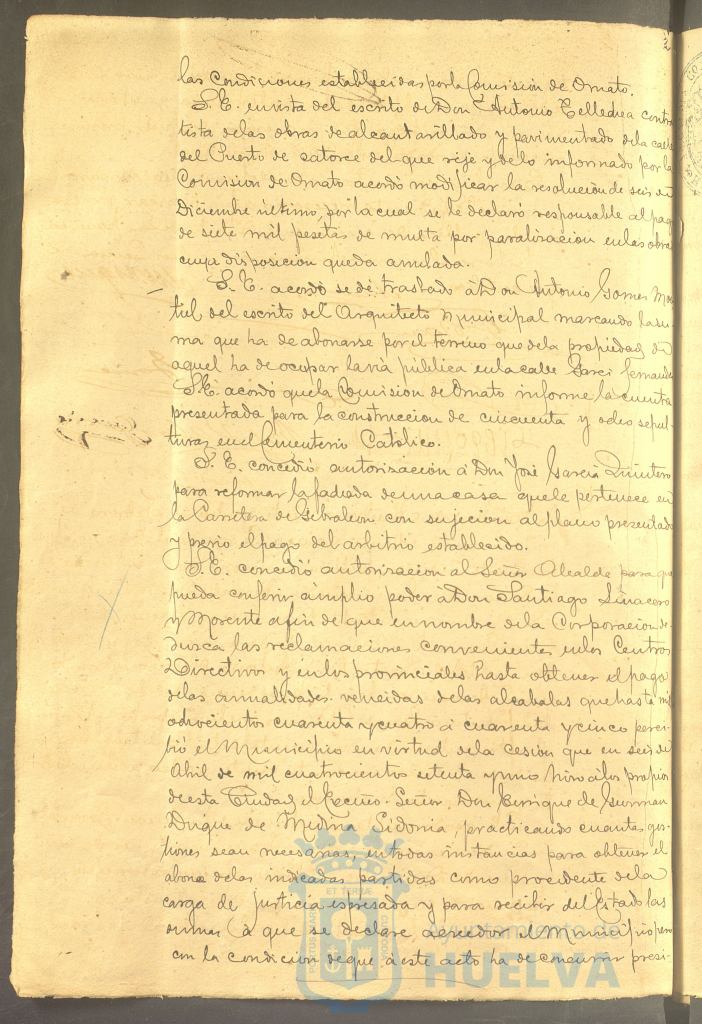 las condiciones establecidas por la Comisión de Ornato.
S. E. en vista del escrito de Don Antonio Telledrea contra
tista de las obras de alcantarillado y pavimentado de la calle
del Puerto de catorce del que rije y de lo informado por la
Comision de Ornato acordó modificar la resolucion de seis de
Diciembre último, por la cual se le declaró responsable al pago
de siete mil pesetas de multa por paralizacion en las obras
cuya disposicion queda anulada.
S. E. acordó se dé traslado á Don Antonio Gomez
del escrito del Arquitecto Municipal marcando la su-
ma que ha de abonarse por el terreno que de la propiedad de
aquel ha de ocupar la via pública en la calle Garci Fernandez
S. E. acordó que la Comision de Ornato informe la cuenta
presentada para la construccion de cincuenta y ocho sepul-
turas en el Cementerio Católico.
S. E. concedió autorización á Don José Garcia Quintero
para reformar la fachada de una casa que le pertenece en
la Carretera de Gibraleon con sujecion al plano presentado
y previo el pago del arbitrio establecido.
S. E. concedió autorizacion al Señor Alcalde para que
pueda conferir ámplio poder á Don Santiago Linacero
y Morente afin de que en nombre de la Corporacion de-
duzca las reclamaciones convenientes en los Centros
Directivos y en los provinciales hasta obtener el pago
de las anualidades vencidas de las alcabalas que hasta mil
ochocientos cuarenta y cuatro á cuarenta y cinco perci-
bió el Municipio en virtud de la cesion que en seis de
Abril de mil cuatrocientos setenta y uno hizo á los propios
de esta Ciudad el Excmo. Señor Don Enrique de Guzman
Duque de Medina Sidonia, practicando cuantas ges-
tiones sean necesarias, en todas instancias para obtener el
abono de las indicadas partidas como procedente de la
carga de justicia espresada y para recibir del Estado las
sumas á que se declare acreedor el Municipio pero
con la condicion de que á este acto ha de concurrir presi-
ET TERRÆ
PORTUS MARIS
CUSTODIA
Ayuntamiento de
HUELVA